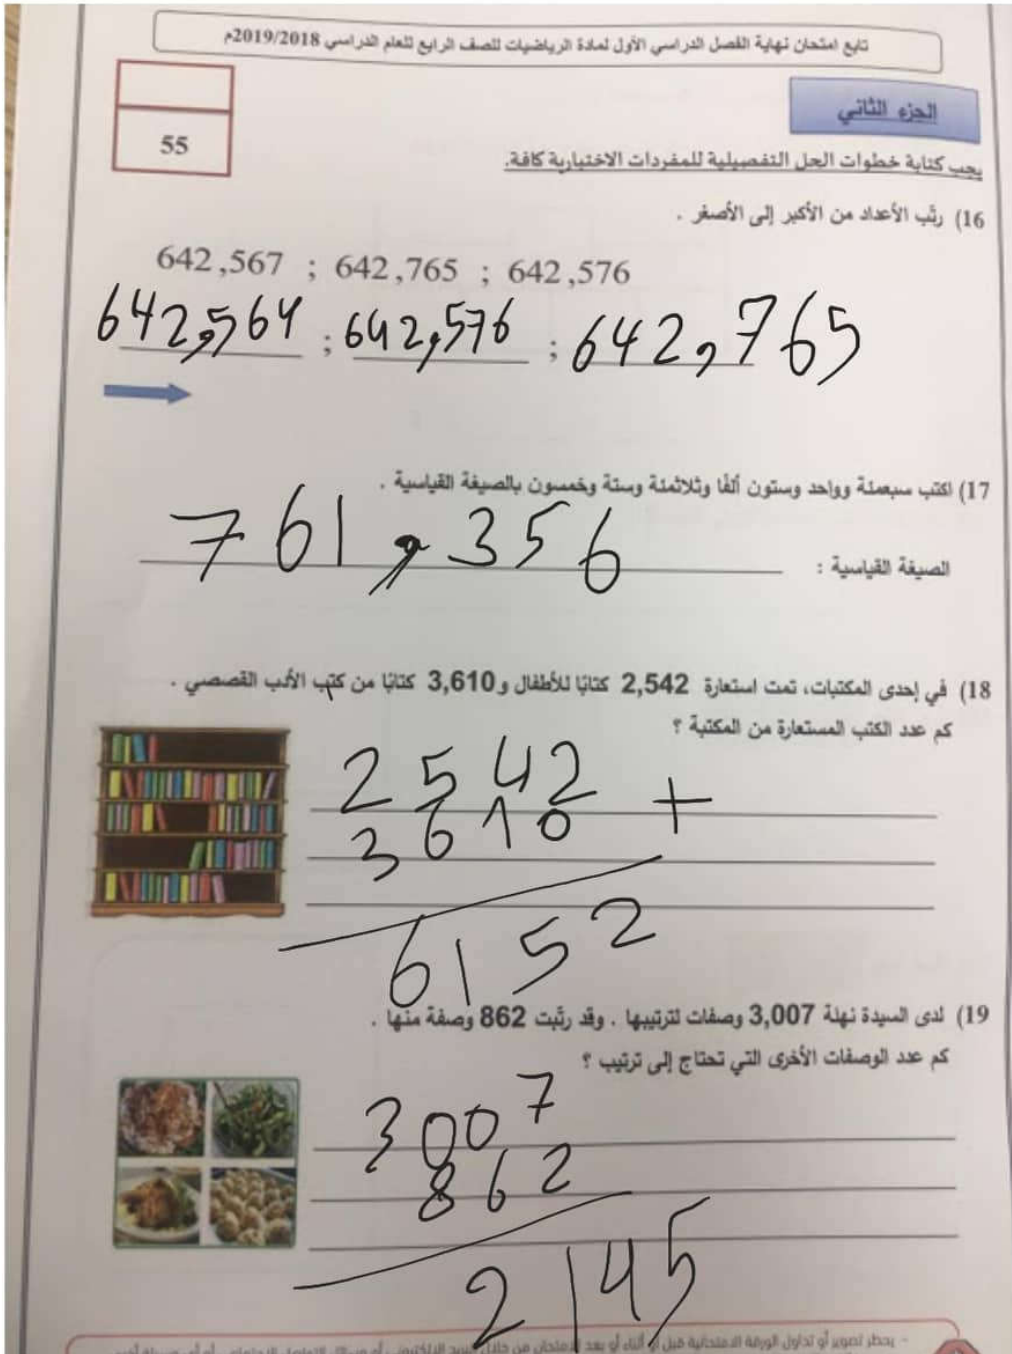 تابع امتحان نهاية الفصل الدراسي الأول لمادة الرياضيات للصف الرابع للعام الدراسي 2019/2018م
55
الجزء الثاني
يجب كتابة خطوات الحل التفصيلية للمفردات الاختبارية كافة.
16) رتّب الأعداد من الأكبر إلى الأصغر .
642,567 ; 642,765 ; 642,576
642,564 ; 642,576 ; 642,765
17) اكتب سبعمئة وواحد وستون ألفًا وثلاثمئة وستة وخمسون بالصيغة القياسية .
الصيغة القياسية : 761,356
18) في إحدى المكتبات، تمت استعارة 2,542 كتابًا للأطفال و3,610 كتابًا من كتب الأدب القصصي .
كم عدد الكتب المستعارة من المكتبة ؟
2542 +
3610
6152
19) لدى السيدة نهلة 3,007 وصفات لترتيبها . وقد رتّبت 862 وصفة منها .
كم عدد الوصفات الأخرى التي تحتاج إلى ترتيب ؟
3007
862
2145
- يحظر تصوير أو تداول الورقة الامتحانية قبل أو أثناء أو بعد الامتحان من خلال البريد الالكتروني أو